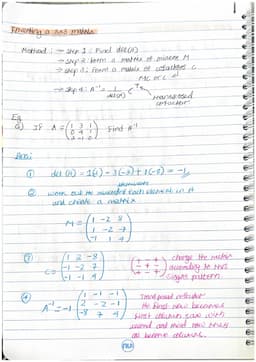 Inverting a 3x3 matrix
Method : → Step 1 : Find det(A)
→ Step 2: form a matrix of minors M
→ Step 3: Form a matrix of cofactors C
→ Step 4: A⁻¹ = 1/det(A) Cᵀ
transposed cofactor
Eg
Q) If A = (1 3 1
0 4 1
2 -1 0) Find A⁻¹
① det (A) = 1(1) - 3(-2) + 1(-8) = -1
②
and create a matrix
M = (1 -2 -8
1 -2 -7
-1 1 4)
③
C = (1 2 -8
-1 -2 7
-1 -1 4)
(+ - +
- + -
+ - +)
change the matrix
according to this
signs pattern.
④
A⁻¹ = -1 (1 -1 -1
2 -2 -1
-8 7 4)
Transposed cofactor
the first row becomes
first column same with
second and third row
as become columns.